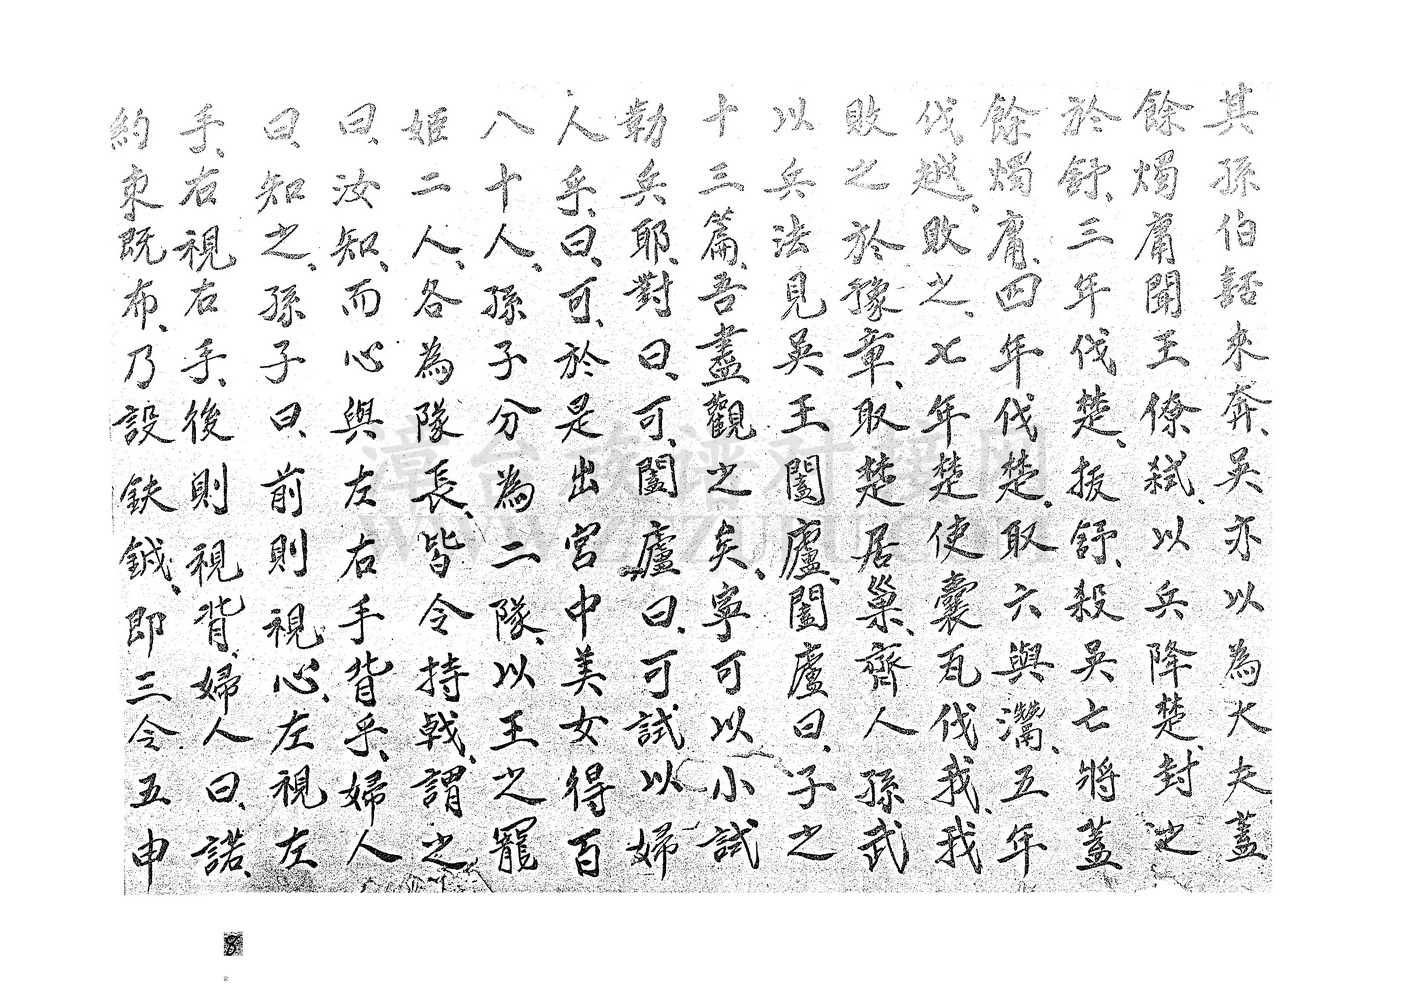 其孫伯嚭來奔、吳亦以為大夫蓋
餘燭庸聞王僚弒、以兵降楚、封之
於舒、三年伐楚、拔舒、殺吳亡將蓋
餘燭庸、四年伐楚、取六與灊、五年
伐越、敗之、七年楚使囊瓦伐我、我
敗之於豫章、取楚居巢、齊人孫武
以兵法見吳王闔廬、闔廬曰、子之
十三篇、吾盡觀之矣、寧可以小試
勒兵耶、對曰、可、闔廬曰、可試以婦
人乎、曰、可、於是出宮中美女得百
八十人、孫子分為二隊、以王之寵
姬二人、各為隊長、皆令持戟、謂之
曰、汝知、而心與左右手背乎、婦人
曰、知之、孫子曰、前則視心、左視左
手、右視右手、後則視背、婦人曰、諾、
約束既布、乃設鈇鉞、即三令五申
漳台族谱对接网
WWW.ZTZUPU.COM
8